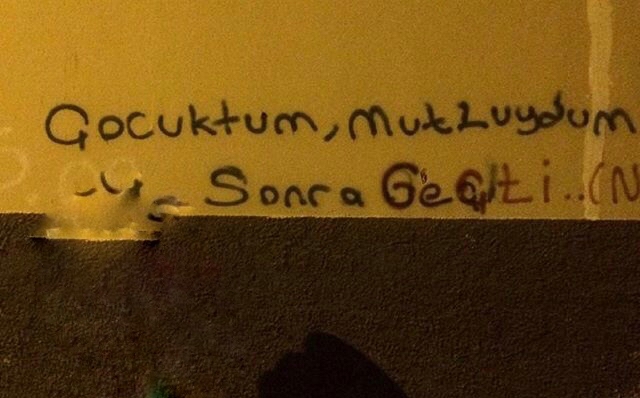 Çocuktum, mutluydum
Sonra Geçti..(N